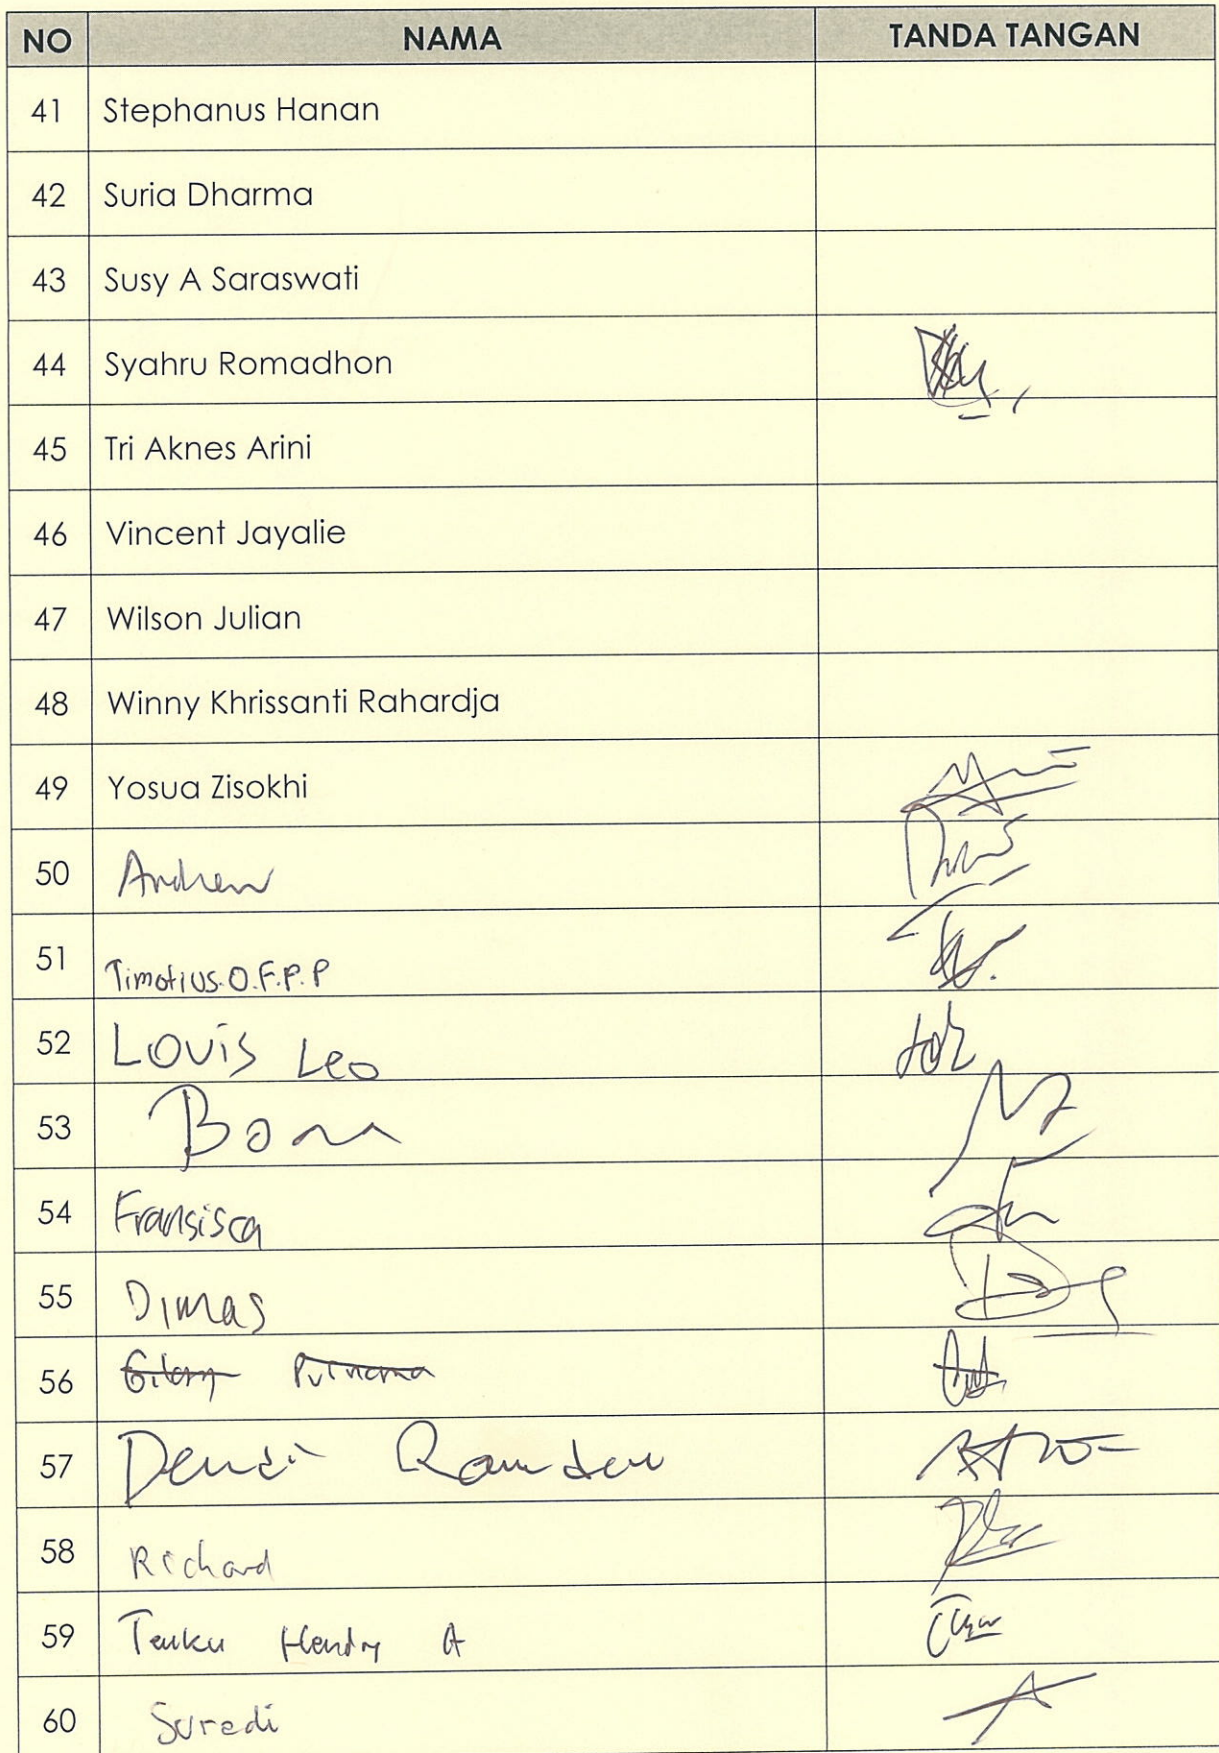 NO NAMA TANDA TANGAN
41 Stephanus Hanan
42 Suria Dharma
43 Susy A Saraswati
44 Syahru Romadhon
45 Tri Aknes Arini
46 Vincent Jayalie
47 Wilson Julian
48 Winny Khrissanti Rahardja
49 Yosua Zisokhi
50 Andrew
51 Timotius.O.F.P.P
52 Louis Leo
53
54 Fransisca
55 Dimas
56 Purnama
57
58 Richard
59 Teuku Hendry A
60 Suredi